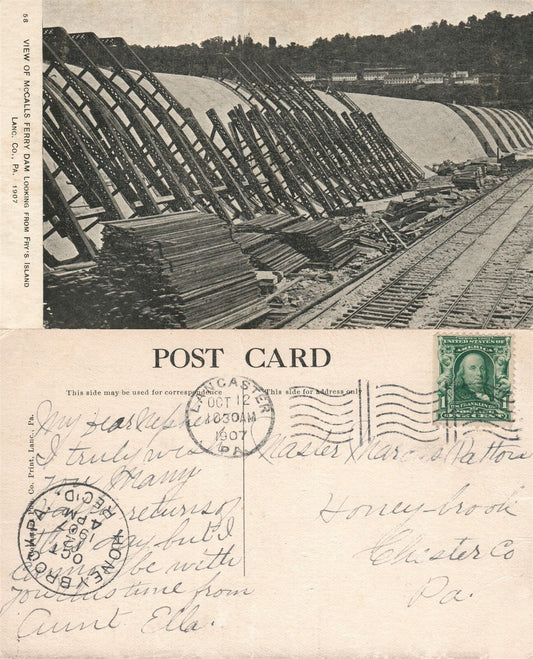 58 VIEW OF McCALLS FERRY DAM LOOKING FROM FRY'S ISLAND
LANC. CO., PA. 1907
POST CARD
This side may be used for correspondence
This side for address only
LANCASTER
OCT 12
1907
PA
UNITED STATES OF AMERICA
My dear
I truly wish
you many
happy returns of
the day but I
cannot be with
you this time from
Aunt Ella.
HONEYBROOK PA
REC'D.
OCT
Master Marcus Patton
Honey-brook
Chester Co
Pa.
Co. Print, Lanc., Pa.